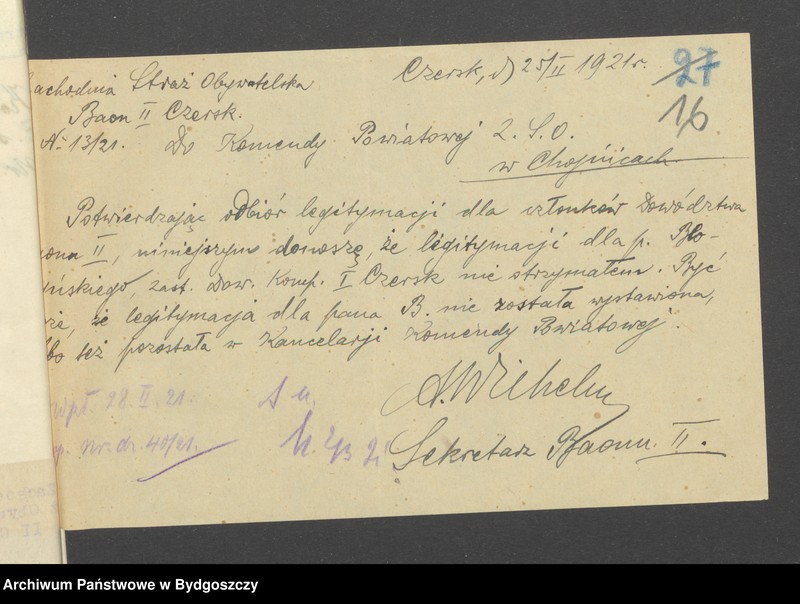 achodnia Straż Obywatelska
Czersk, d) 25/II 1921r.
27
16
Baon II Czersk.
№ 13/21.
Do Komendy Powiatowej Z.S.O.
w Chojnicach
Potwierdzając odbiór legitymacji dla członków Dowództwa
onu II, niniejszym donoszę, że legitymacji dla p. Bło-
ńskiego, zast. Dow. Komp. I Czersk nie otrzymałem. Być
że, że legitymacja dla pana B. nie została wystawiona,
bo też pozostała w Kancelarji Komendy Powiatowej.
A. Wilhelm
Sekretarz Baonu II.
wpł. 28.II.21.
p. nr. dz. 40/21.
Archiwum Państwowe w Bydgoszczy